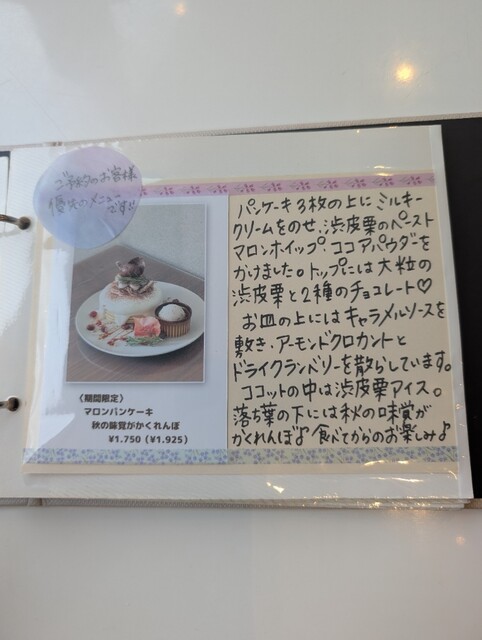 ご予約のお客様
優先のメニュー
です!!
パンケーキ3枚の上にミルキー
クリームをのせ、渋皮栗のペースト
マロンホイップ、ココアパウダーを
かけました。トップには大粒の
渋皮栗と2種のチョコレート♡
お皿の上にはキャラメルソースを
敷き、アーモンドクロカントと
ドライクランベリーを散らしています。
ココットの中は渋皮栗アイス。
落ち葉の下には秋の味覚が
かくれんぼ♪食べてからのお楽しみ♪
〈期間限定〉
マロンパンケーキ
秋の味覚がかくれんぼ
¥1.750(¥1.925)